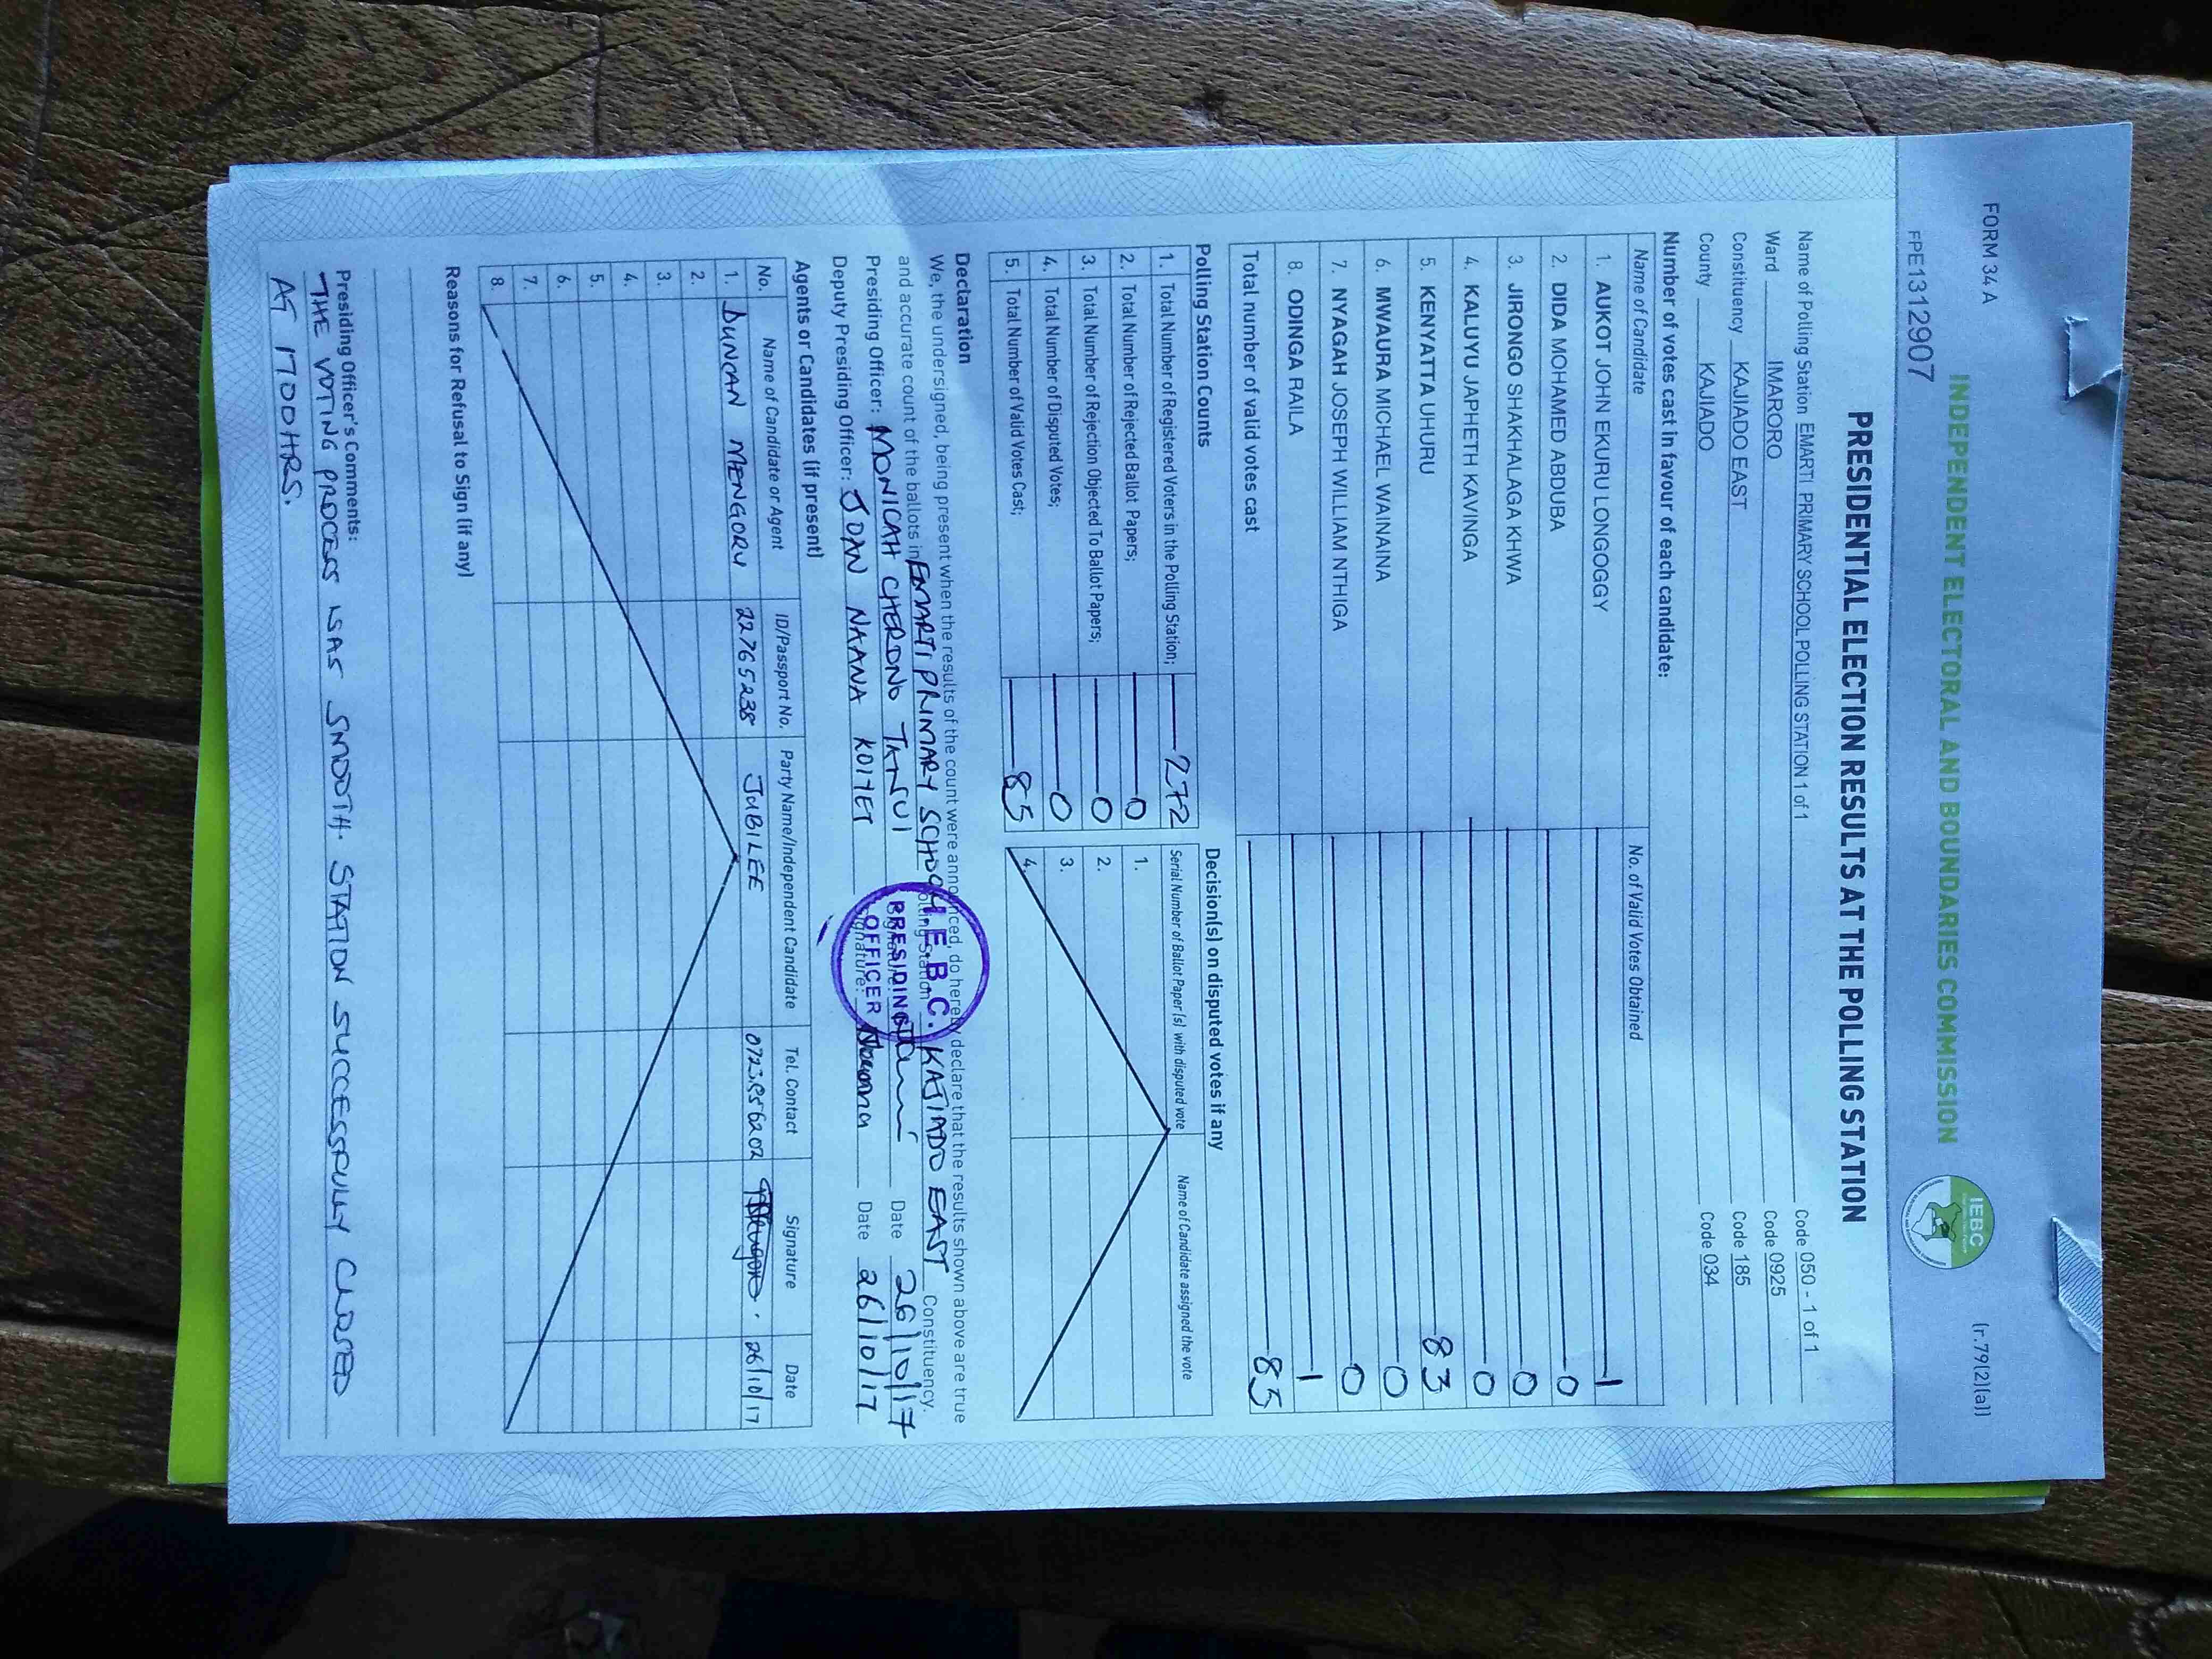 FORM 34 A
(r.79(2)(a))
FPE1312907
INDEPENDENT ELECTORAL AND BOUNDARIES COMMISSION
IEBC
PRESIDENTIAL ELECTION RESULTS AT THE POLLING STATION
Name of Polling Station EMARTI PRIMARY SCHOOL POLLING STATION 1 of 1 Code 050 - 1 of 1
Ward IMARORO Code 0925
Constituency KAJIADO EAST Code 185
County KAJIADO Code 034
Number of votes cast in favour of each candidate:
Name of Candidate No. of Valid Votes Obtained
1. AUKOT JOHN EKURU LONGOGGY 1
2. DIDA MOHAMED ABDUBA 0
3. JIRONGO SHAKHALAGA KHWA 0
4. KALUYU JAPHETH KAVINGA 0
5. KENYATTA UHURU 83
6. MWAURA MICHAEL WAINAINA 0
7. NYAGAH JOSEPH WILLIAM NTHIGA 0
8. ODINGA RAILA 1
Total number of valid votes cast 85
Polling Station Counts
1. Total Number of Registered Voters in the Polling Station; 272
2. Total Number of Rejected Ballot Papers; 0
3. Total Number of Rejection Objected To Ballot Papers; 0
4. Total Number of Disputed Votes; 0
5. Total Number of Valid Votes Cast; 85
Decision(s) on disputed votes if any
Serial Number of Ballot Paper(s) with disputed vote Name of Candidate assigned the vote
1.
2.
3.
4.
Declaration
We, the undersigned, being present when the results of the count were announced, do hereby declare that the results shown above are true
and accurate count of the ballots in EMARTI PRIMARY SCHOOL Polling Station KAJIADO EAST Constituency.
Presiding Officer: MONICAH CHERONO TANUI Signature: Date 26/10/17
Deputy Presiding Officer: JOAN NAANA KOITET Signature: Naana Date 26/10/17
I.E.B.C.
PRESIDING
OFFICER
Agents or Candidates (if present)
No. Name of Candidate or Agent ID/Passport No. Party Name/Independent Candidate Tel. Contact Signature Date
1. DUNCAN MENGORU 22765238 JUBILEE 0723856202 26/10/17
2.
3.
4.
5.
6.
7.
8.
Reasons for Refusal to Sign (if any)
Presiding Officer's Comments:
THE VOTING PROCESS WAS SMOOTH. STATION SUCCESSFULLY CLOSED
AT 1700HRS.